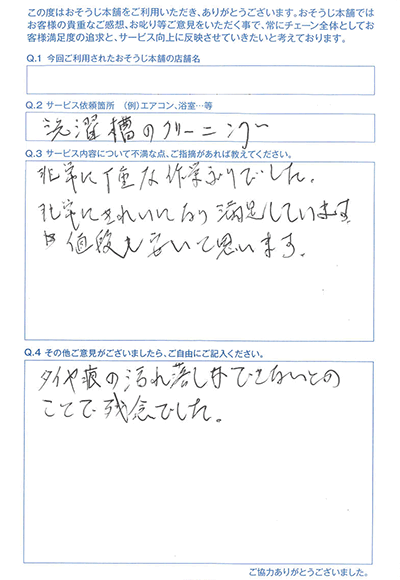 この度はおそうじ本舗をご利用いただき、ありがとうございます。おそうじ本舗では
お客様の貴重なご感想、お叱り等ご意見をいただく事で、常にチェーン全体としてお
客様満足度の追求と、サービス向上に反映させていきたいと考えております。
Q.1 今回ご利用されたおそうじ本舗の店舗名
Q.2 サービス依頼箇所 (例)エアコン、浴室…等
洗濯槽のクリーニング
Q.3 サービス内容について不満な点、ご指摘があれば教えてください。
非常に丁重な作業ぶりでした。
非常にきれいになり満足しています
値段も安いと思います。
Q.4 その他ご意見がございましたら、ご自由にご記入ください。
タイヤ痕の汚れ落しはできないとの
ことで残念でした。
ご協力ありがとうございました。